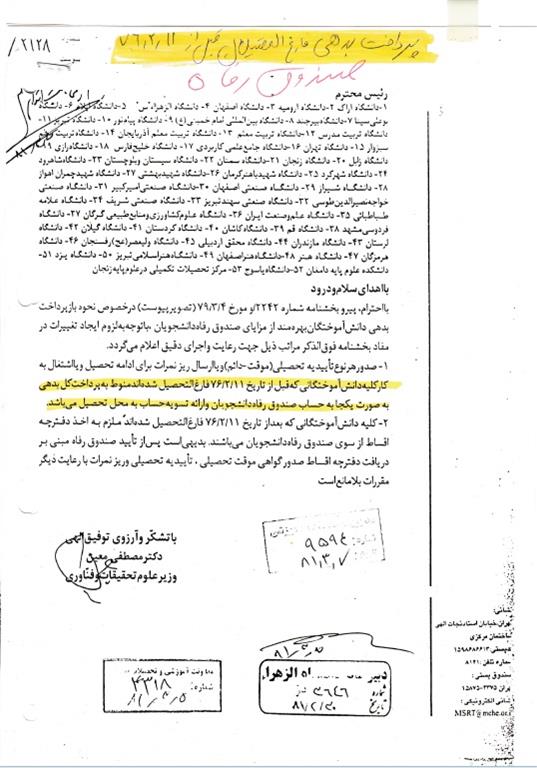 پرداخت بدهی فارغ التحصیلان قبل از ۷۶,۲,۱۱
صندوق رفاه
۲۱۲۸/
رئیس محترم
۱-دانشگاه اراک ۲-دانشگاه ارومیه ۳- دانشگاه اصفهان ۴- دانشگاه الزهراء"س" ۵-دانشگاه ایلام ۶- دانشگاه
بوعلی سینا ۷-دانشگاه بیرجند ۸- دانشگاه بین‌المللی امام خمینی(ع) ۹-دانشگاه پیام‌نور ۱۰- دانشگاه تبریز ۱۱-
دانشگاه تربیت مدرس ۱۲-دانشگاه تربیت معلم ۱۳- دانشگاه تربیت معلم آذربایجان ۱۴- دانشگاه تربیت معلم
سبزوار ۱۵- دانشگاه تهران ۱۶-دانشگاه جامع‌علمی‌کاربردی ۱۷- دانشگاه خلیج‌فارس ۱۸- دانشگاه‌رازی ۱۹-
دانشگاه زابل ۲۰- دانشگاه زنجان ۲۱- دانشگاه سمنان ۲۲- دانشگاه سیستان وبلوچستان ۲۳- دانشگاه‌شاهرود
۲۴- دانشگاه شهرکرد ۲۵- دانشگاه شهیدباهنرکرمان ۲۶-دانشگاه شهیدبهشتی ۲۷- دانشگاه شهیدچمران اهواز
۲۸- دانشگاه شیراز ۲۹- دانشگاه صنعتی اصفهان ۳۰- دانشگاه صنعتی‌امیرکبیر ۳۱- دانشگاه صنعتی
خواجه‌نصیرالدین‌طوسی ۳۲- دانشگاه صنعتی سهندتبریز ۳۳- دانشگاه صنعتی شریف ۳۴- دانشگاه علامه
طباطبائی ۳۵- دانشگاه علم‌وصنعت ایران ۳۶- دانشگاه علوم‌کشاورزی‌ومنابع‌طبیعی گرگان ۳۷- دانشگاه
فردوسی‌مشهد ۳۸- دانشگاه قم ۳۹-دانشگاه‌کاشان ۴۰- دانشگاه کردستان ۴۱- دانشگاه گیلان ۴۲- دانشگاه
لرستان ۴۳- دانشگاه مازندران ۴۴- دانشگاه محقق اردبیلی ۴۵- دانشگاه ولیعصر(عج)رفسنجان ۴۶- دانشگاه
هرمزگان ۴۷- دانشگاه هنر ۴۸-دانشگاه‌هنراصفهان ۴۹-دانشگاه‌هنراسلامی‌تبریز ۵۰- دانشگاه یزد ۵۱-
دانشکده علوم پایه دامغان ۵۲-دانشگاه‌یاسوج ۵۳- مرکز تحصیلات تکمیلی درعلوم‌پایه‌زنجان
بااهدای‌سلام‌ودرود
بااحترام، پیرو بخشنامه شماره ۲۲۴۲/و مورخ ۷۹/۳/۴ (تصویرپیوست)درخصوص نحوه بازپرداخت
بدهی دانش‌آموختگان‌بهره‌مند از مزایای صندوق رفاه‌دانشجویان ، باتوجه‌به‌لزوم ایجاد تغییرات در
مفاد بخشنامه فوق‌الذکر مراتب ذیل جهت رعایت واجرای دقیق اعلام می‌گردد.
۱- صدورهرنوع‌تأییدیه تحصیلی(موقت-دائم)ویاارسال ریز نمرات برای ادامه تحصیل ویااشتغال به
کارکلیه‌دانش‌آموختگانی‌که‌قبل از تاریخ ۷۶/۲/۱۱ فارغ‌التحصیل شده‌اندمنوط به‌پرداخت‌کل‌بدهی به
به صورت یکجا به حساب صندوق رفاه‌دانشجویان وارائه تسویه‌حساب به محل تحصیل می‌باشد.
۲- کلیه دانش‌آموختگانی که بعداز تاریخ ۷۶/۲/۱۱ فارغ‌التحصیل شده‌اند ملزم به اخذ دفترچه
اقساط از سوی صندوق رفاه‌دانشجویان می‌باشند. بدیهی‌است پس‌از تأیید صندوق رفاه مبنی بر
دریافت دفترچه اقساط صدورگواهی موقت تحصیلی ، تأییدیه تحصیلی وریز نمرات با رعایت دیگر
مقررات بلامانع‌است
باتشکّر وآرزوی توفیق‌الهی
دکترمصطفی‌معین
وزیرعلوم‌تحقیقات‌وفنّاوری
شماره: ۹۵۹۴
۸۱,۳,۷
معاونت آموزشی و تحصیلات
شماره: ۴۳۱۸
شماره ۳۶۴۶
تاریخ ۸۱/۲/۳۰
نشانی:
تهران،خیابان استادنجات الهی
ساختمان مرکزی
کدپستی: ۱۵۹۸۶۸۶۶۱۳
شماره تلفن: ۸۱۴۱
صندوق پستی:
تهران ۳۳۷۵-۱۵۸۷۵
نشانی الکترونیکی:
MSRT@mche.or.i